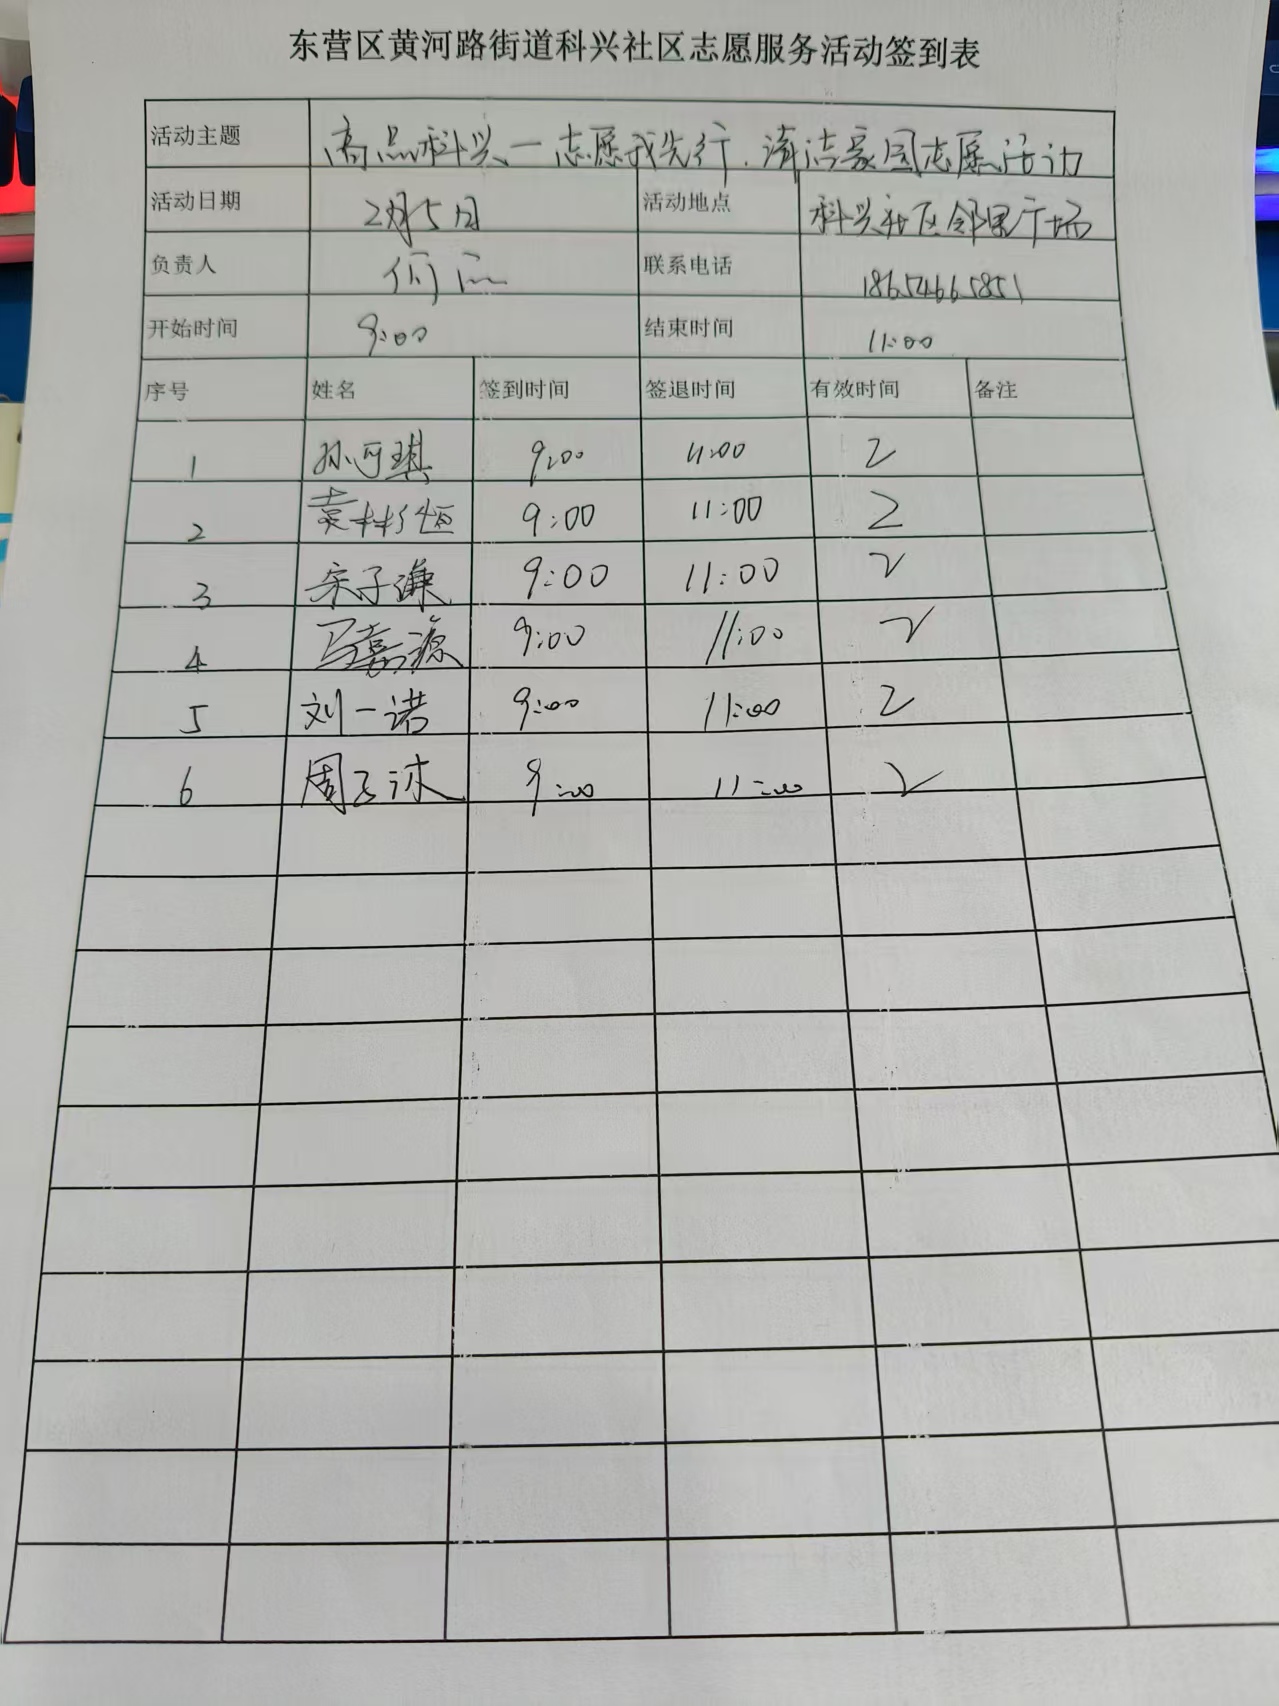 东营区黄河路街道科兴社区志愿服务活动签到表
活动主题 高点科兴一志愿我先行.清洁家园志愿活动
活动日期 2月5日 活动地点 科兴社区邻里广场
负责人 何 联系电话 18654665851
开始时间 9:00 结束时间 11:00
序号 姓名 签到时间 签退时间 有效时间 备注
1 孙可琪 9:00 11:00 2
2 袁彬恒 9:00 11:00 2
3 宋子谦 9:00 11:00 2
4 马嘉源 9:00 11:00 2
5 刘一诺 9:00 11:00 2
6 周子沐 9:00 11:00 2